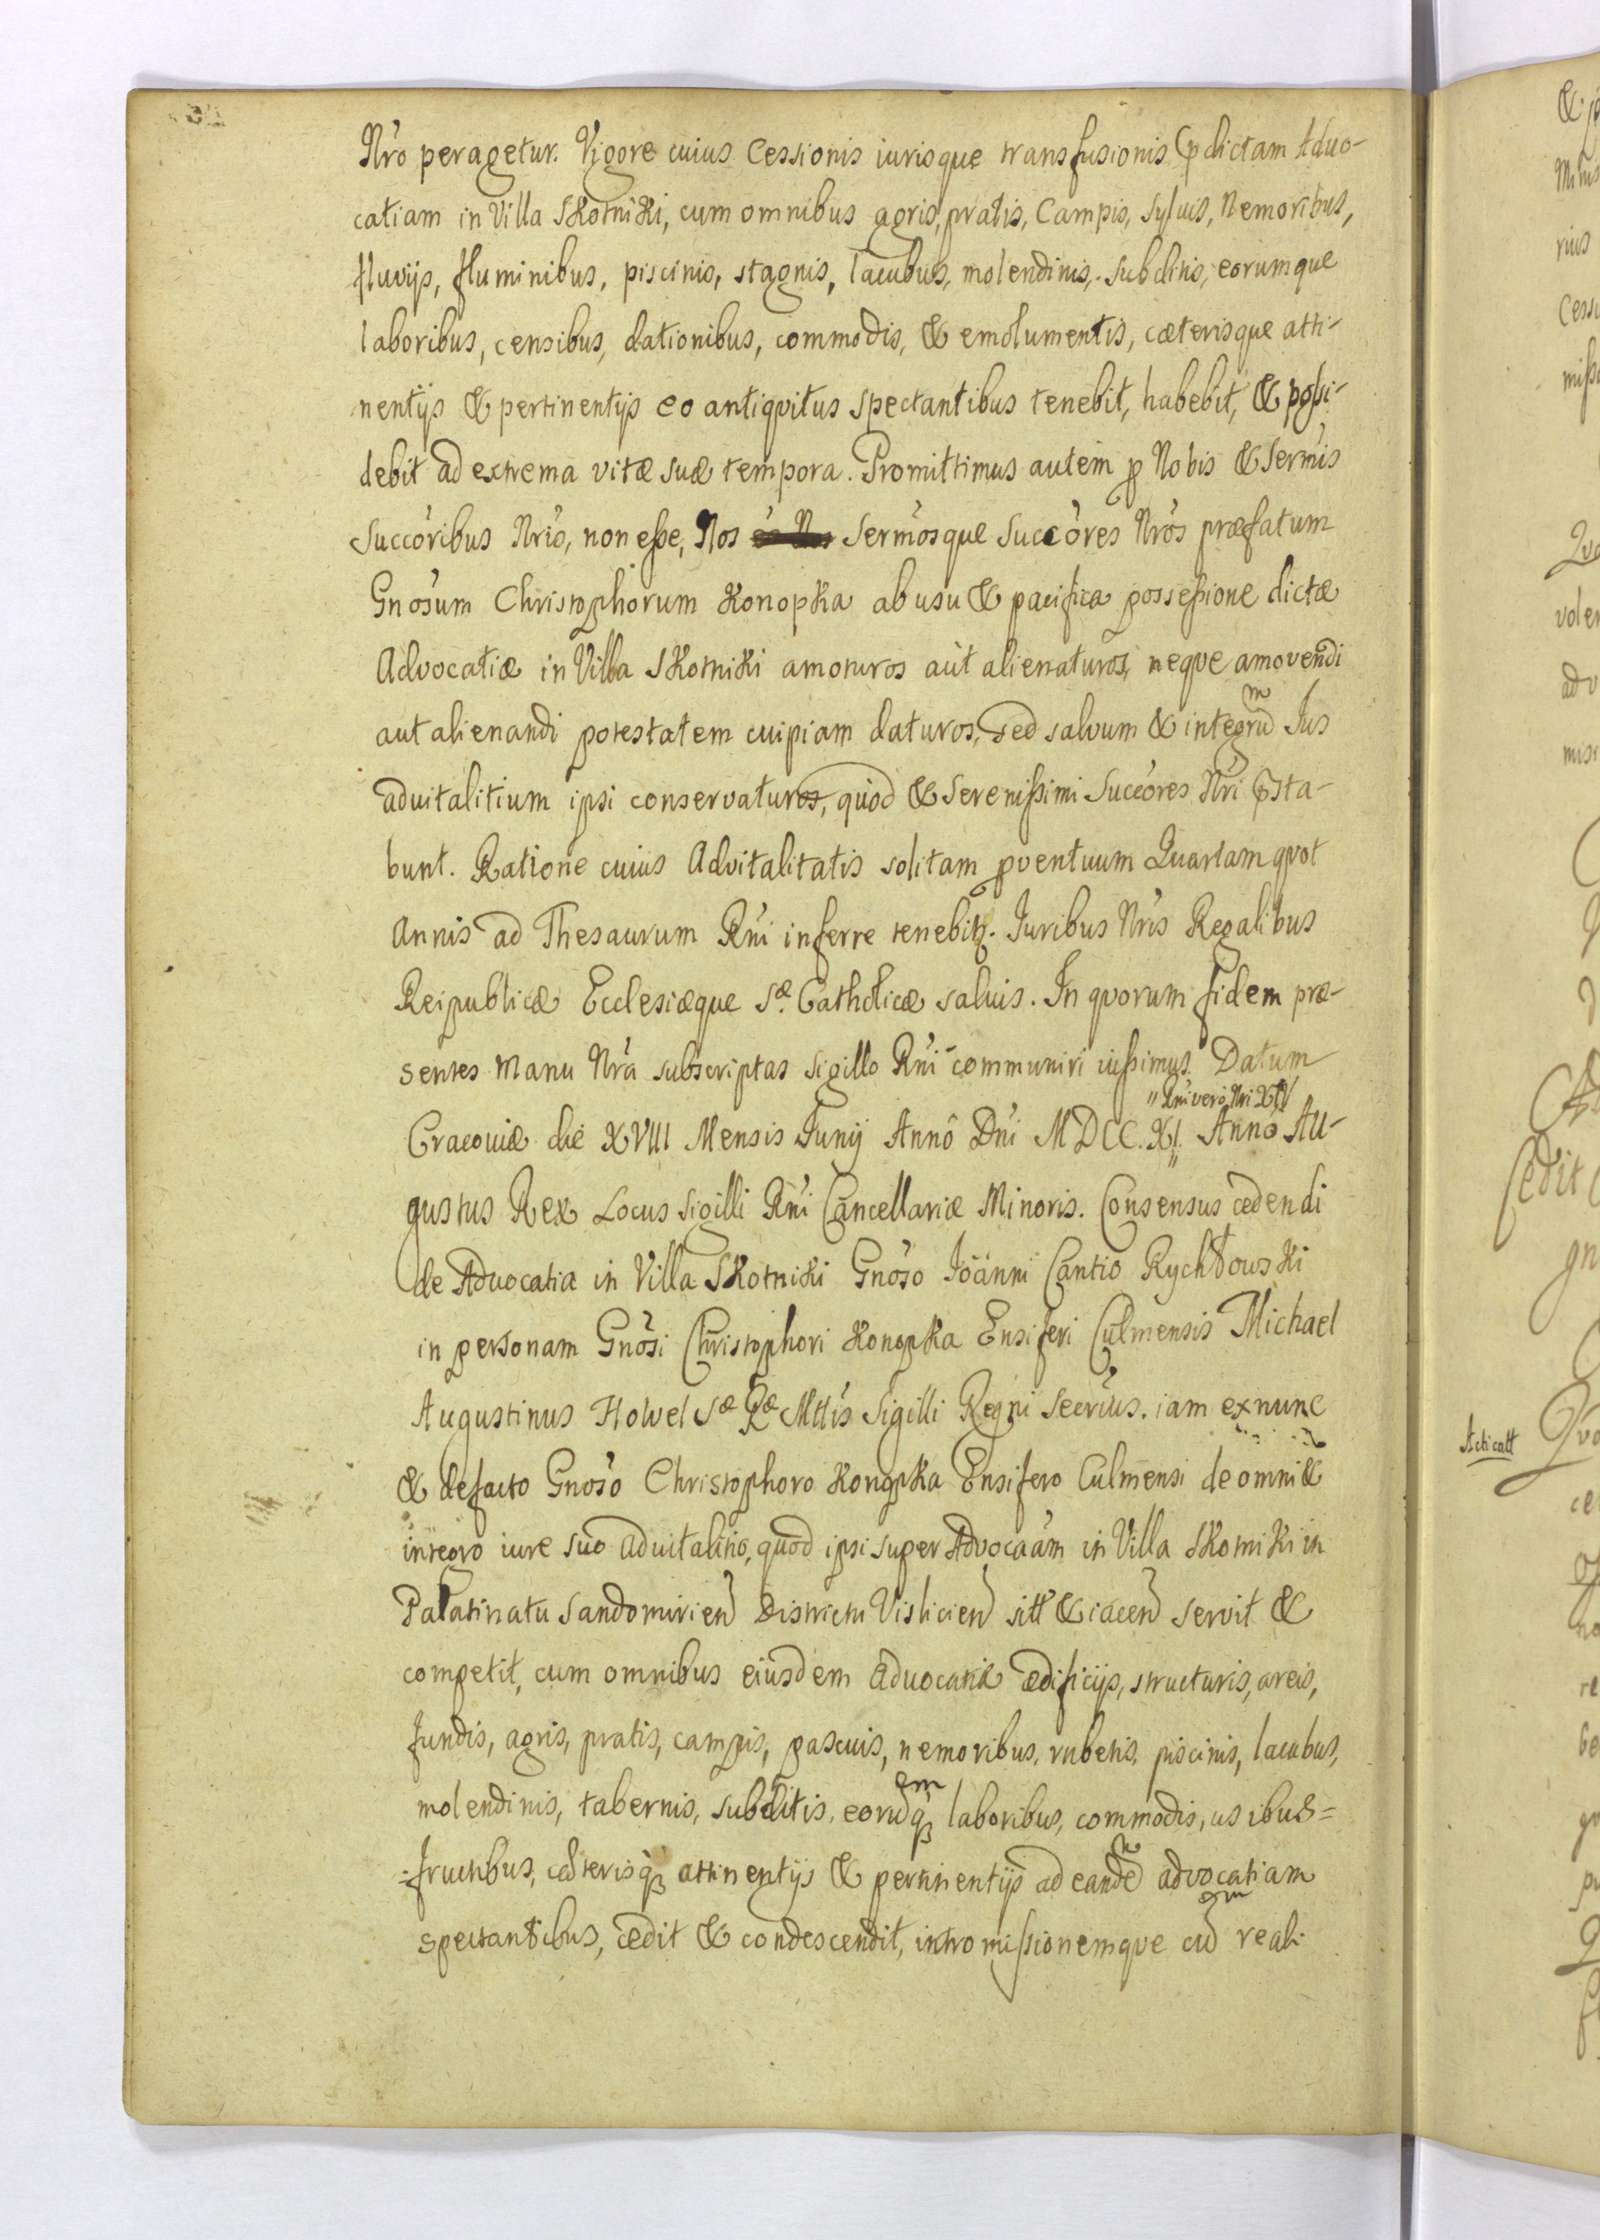 Nro peragetur. Vigore cuius Cessionis iurisque transfusionis pdictam Advo-
catiam in Villa Skotniki, cum omnibus agris, pratis, Campis, Syluis, Nemoribus,
fluvijs, fluminibus, piscinis, stagnis, lacubus, molendinis, subditis, eorumque
laboribus, censibus, dationibus, commodis, & emolumentis, cæterisque atti-
nentijs & pertinentijs eo antiqvitus spectantibus tenebit, habebit, & possi-
debit ad extrema vitæ suæ tempora. Promittimus autem p Nobis & Sermis
Succoribus Nris, non esse, Nos Sermosque Succores Nros præfatum
Gnosum Christophorum Konopka ab usu & pacifica possessione dictæ
Advocatiæ in Villa Skotniki amoturos aut alienaturos, neque amovendi
aut alienandi potestatem cuipiam daturos, sed salvum & integrum Jus
advitalitium ipsi conservaturos, quod & Serenissimi Succores Nri psta-
bunt. Ratione cuius Advitalitatis solitam pventuum Quartam qvot
Annis ad Thesaurum Rni inferre tenebit. Juribus Nris Regalibus
Reipublicæ Ecclesiæque Sæ Catholicæ saluis. In qvorum fidem præ-
sentes Manu Nra subscriptas Sigillo Rni communiri iussimus. Datum
" Rni vero Nri XIV
Cracoviæ die XVIII Mensis Junij Anno Dni MDCC.XI. Anno Au-
gustus Rex Locus Sigilli Rni Cancellariæ Minoris. Consensus cedendi
de Advocatia in Villa Skotniki Gnoso Joanni Cantio Rychłowski
in personam Gnosi Christophori Konopka Ensiferi Culmensis Michael
Augustinus Holvel Sæ Ræ Mttis Sigilli Regni Secrius. iam ex nunc
& defacto Gnoso Christophoro Konopka Ensifero Culmensi de omni &
integro iure suo advitalitio, quod ipsi super Advocaam in Villa Skotniki in
Palatinatu Sandomirien Districtu Vislicien sitt & iacen servit &
competit, cum omnibus eiusdem Advocatiæ ædificijs, structuris, areis,
fundis, agris, pratis, campis, pascuis, nemoribus, rubetis, piscinis, lacubus,
molendinis, tabernis, subditis, eorumq laboribus, commodis, usibus=
=fructibus, cæterisq attinentijs & pertinentijs ad eandem advocatiam
spectantibus, cedit & condescendit, intromissionemque eum reali
Acticatt